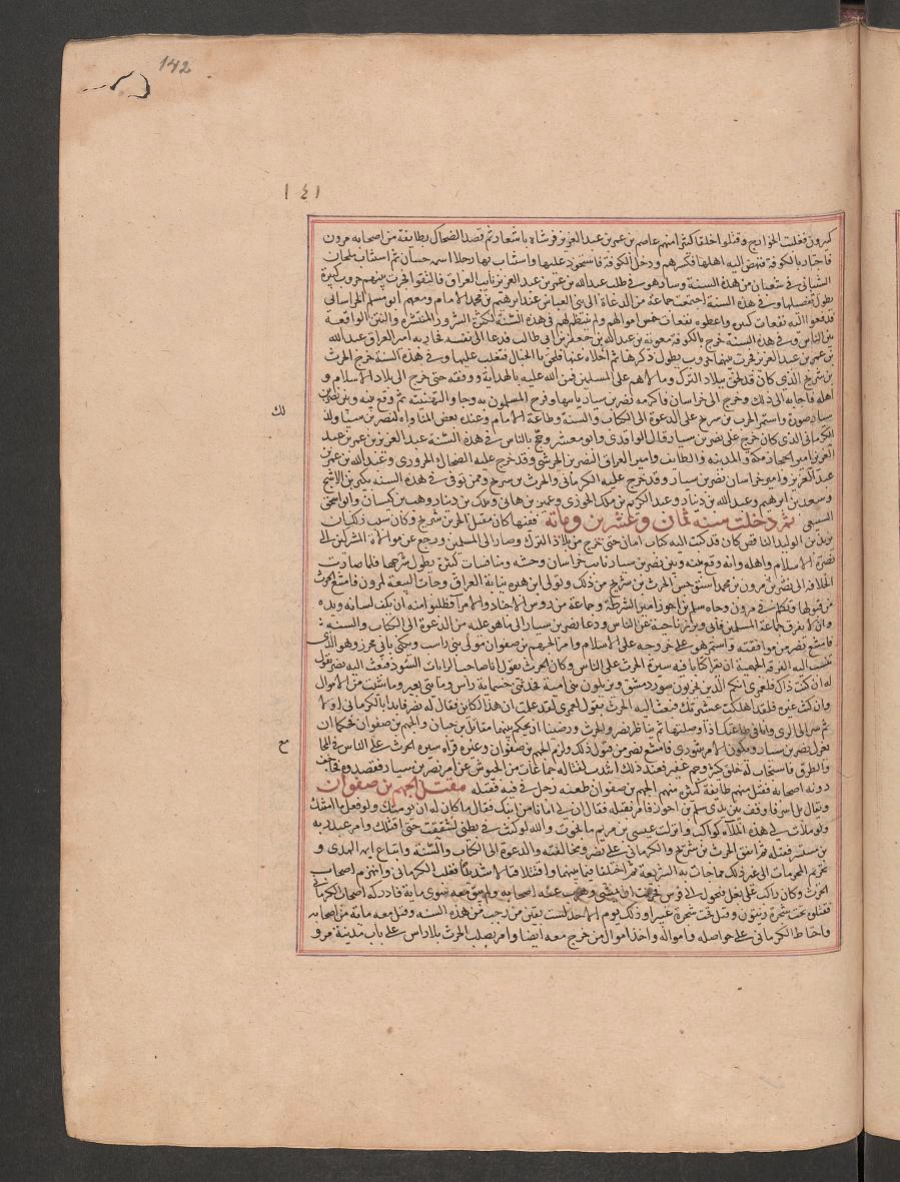 142
١٤١
كثيرون فغلبت الخوارج وقتلوا خلقا كثيرا منهم عاصم بن عمر بن عبد العزيز فرثاه باشعار ثم قصد الضحاك بطايفة من اصحابه مرون
فاجتاز بالكوفة فنهض اليه اهلها فكسرهم ودخل الكوفة فاستحوذ عليها واستناب بها رجلا اسمه حسان ثم استناب ملحان
الشيباني في شعبان من هذه السنة وسار هو في طلب عبد الله بن عمر بن عبد العزيز نايب العراق فالتقوا فجرت بينهم حروب كثيرة
يطول تفصيلها وفي هذه السنة اجتمعت جماعة من الدعاة الى بني العباس عند ابرهيم بن محمد الامام ومعهم ابو مسلم الخراساني
فدفعوا اليه نفقات كثيرة واعطوه خمس اموالهم ولم ينتظم لهم في هذه السنة لكثرة الشرور المنتشرة والفتن الواقعة
بين الناس وفي هذه السنة خرج بالكوفة معوية بن عبد الله بن جعفر بن ابي طالب فدعا الى نفسه فحاربه امير العراق عبد الله
بن عمر بن عبد العزيز فجرت بينهما حروب يطول ذكرها ثم اجلاه عنها فلحق بالجبال فتغلب عليها وفي هذه السنة خرج الحرث
بن سريج الذي كان قد لحق ببلاد الترك ومالاهم على المسلمين فمن الله عليه بالهداية ووفقه حتى خرج الى بلاد الاسلام و
اهله فاجابه الى ذلك وخرج الى خراسان فاكرمه نصر بن سيار وفرح المسلمون به ثم وقع بينه وبين نصر بن
لك
سيار واستمر الحرث بن سريج على الدعوة الى الكتاب والسنة وطاعة الامام وعنده بعض المناواة لنصر بن سيار ولد
الكرماني الذي كان خرج على نصر بن سيار قال الواقدي وابو معشر وحج بالناس في هذه السنة عبد العزيز بن عمر بن عبد
العزيز امير الحجاز مكة والمدينة والطايف وامير العراق النضر بن الحرشي وقد خرج عليه الضحاك الحروري وعبد الله بن عمر بن
عبد العزيز وامير خراسان نصر بن سيار وقد خرج عليه الكرماني والحرث بن سريج وممن توفي في هذه السنة بكير بن الاشج
وسعد بن ابرهيم وعبد الله بن دينار وعبد الكريم بن ملك الجزري وعمير بن هاني وملك بن دينار ووهب بن كيسان وابو اسحق
السبيعي ثم دخلت سنة ثمان وعشرين ومائة ففيها كان مقتل الحرث بن سريج وكان سبب ذلك ان
يزيد بن الوليد الناقص كان قد كتب اليه كتاب امان حتى خرج من بلاد الترك وصار الى المسلمين ورجع عن موالاة المشركين الى
نصرة الاسلام واهله وانه وقع بينه وبين نصر بن سيار نايب خراسان وحشة ومنافسات كثيرة يطول شرحها فلما صارت
الخلافة الى مرون بن محمد استوحش الحرث بن سريج من ذلك وتولى ابن هبيرة نيابة العراق وجات البيعة لمرون فامتنع الحرث
من قبولها وتكلم في مرون وجاه سلم بن احوز امير الشرطة وجماعة من روس الاجناد والامرا فطلبوا منه ان يكف لسانه ويده
وان لا يفرق جماعة المسلمين فابى وبرز ناحية عن الناس ودعا نصر بن سيار الى ما هو عليه من الدعوة الى الكتاب والسنة ؛
فامتنع نصر من موافقته واستمر هو على خروجه على الاسلام وامر الجهم بن صفوان مولى بني راسب ويكنى بابي محرز وهو الذي
تنسب اليه الفرقة الجهمية ان يقرا كتابا فيه سيرة الحرث على الناس وكان الحرث يقول انا صاحب الرايات السود فبعث اليه نصر يقول
له ان كنت ذاك فلعمري انكم الذين يخربون سور دمشق ويزيلون بني امية فخذ مني خمسماية راس ومايتي بعير وما شيت من الاموال
وان كنت غيره فلقد اهلكت عشيرتك فبعث اليه الحرث يقول لعمري لقد علمت ان هذا لكاين فقال له نصر فابدا بالكرماني اولا
ثم سر الى الري وانا في طاعتك اذا وصلتها ثم تناظر نصر والحرث ورضيا ان يحكم بينهما مقاتل بن حيان والجهم بن صفوان فحكما ان
مع
يعزل نصر بن سيار ويكون الامر شورى فامتنع نصر من قبول ذلك ولزم الجهم بن صفوان وغيره قراة سيرة الحرث على الناس في الجا
والطرق فاستجاب له خلق كثير وجم غفير فعند ذلك انتدب لقتاله جماعات من الجيوش عن امر نصر بن سيار فقصدوه فحارب
دونه اصحابه فقتل منهم طايفة كثيرة منهم الجهم بن صفوان طعنه رجل في فيه فقتله مقتل الجهم بن صفوان
ويقال بل اسر فاوقف بين يدي سلم بن احوز فامر بقتله فقال ان لي امانا من ابيك فقال ما كان له ان يومنك ولو فعل ما امنتك
ولو ملات لي هذه الملاة كواكب وانزلت عيسى بن مريم ما نجوت والله لو كنت في بطني لشققت بطني حتى اقتلك وامر عبد ربه
بن سيسر فقتله ثم اتفق الحرث بن سريج والكرماني على نصر ومخالفته والدعوة الى الكتاب والسنة واتباع ايمة الهدى و
تحريم المحرمات الى غير ذلك مما جات به الشريعة ثم اختلفا فيما بينهما واقتتلا قتالا شديدا فغلب الكرماني وانهزم اصحاب
الحرث وكان راكبا على بغل فتحول الى فرس فحرنت ان تمشي وهرب عنه اصحابه ولم يبق معه سوى ماية فادركه اصحاب الكرماني
فقتلوه تحت شجرة زيتون وقيل تحت شجرة غبيرا وذلك يوم الاحد لست بقين من رجب من هذه السنه وقتل معه مائة من اصحابه
واحتاط الكرماني على حواصله وامواله واخذ اموال من خرج معه ايضا وامر بصلب الحرث بلا راس على باب مدينة مرو